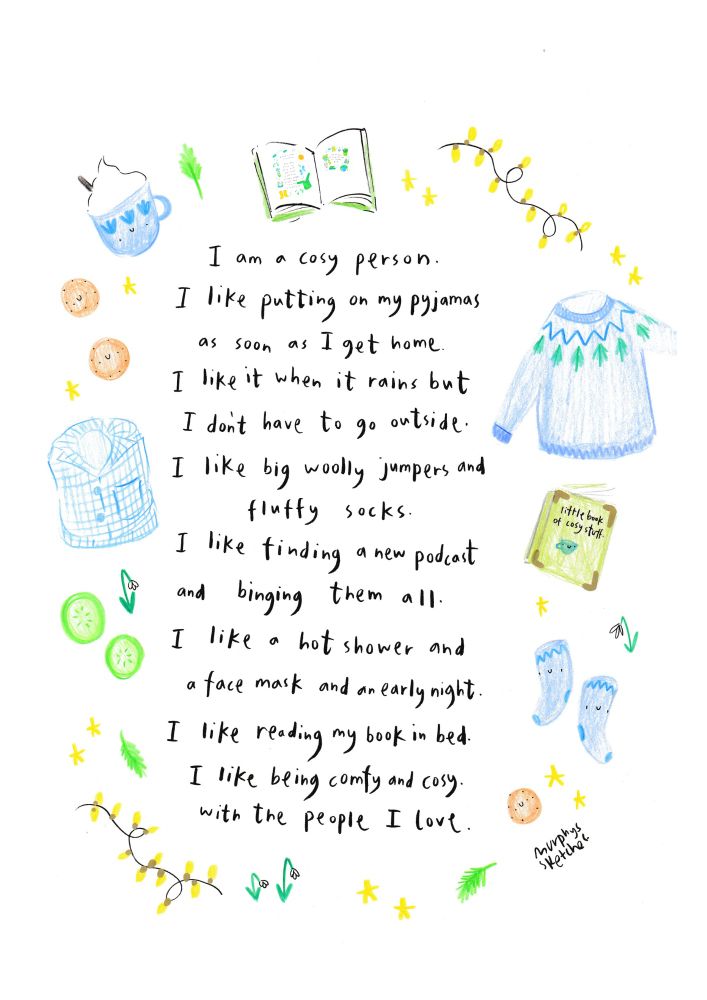 I am a cosy person.
I like putting on my pyjamas
as soon as I get home.
I like it when it rains but
I don't have to go outside.
I like big woolly jumpers and
fluffy socks.
I like finding a new podcast
and binging them all.
I like a hot shower and
a face mask and an early night.
I like reading my book in bed.
I like being comfy and cosy.
with the people I love.
little book
of cosy stuff.
murphys
sketches